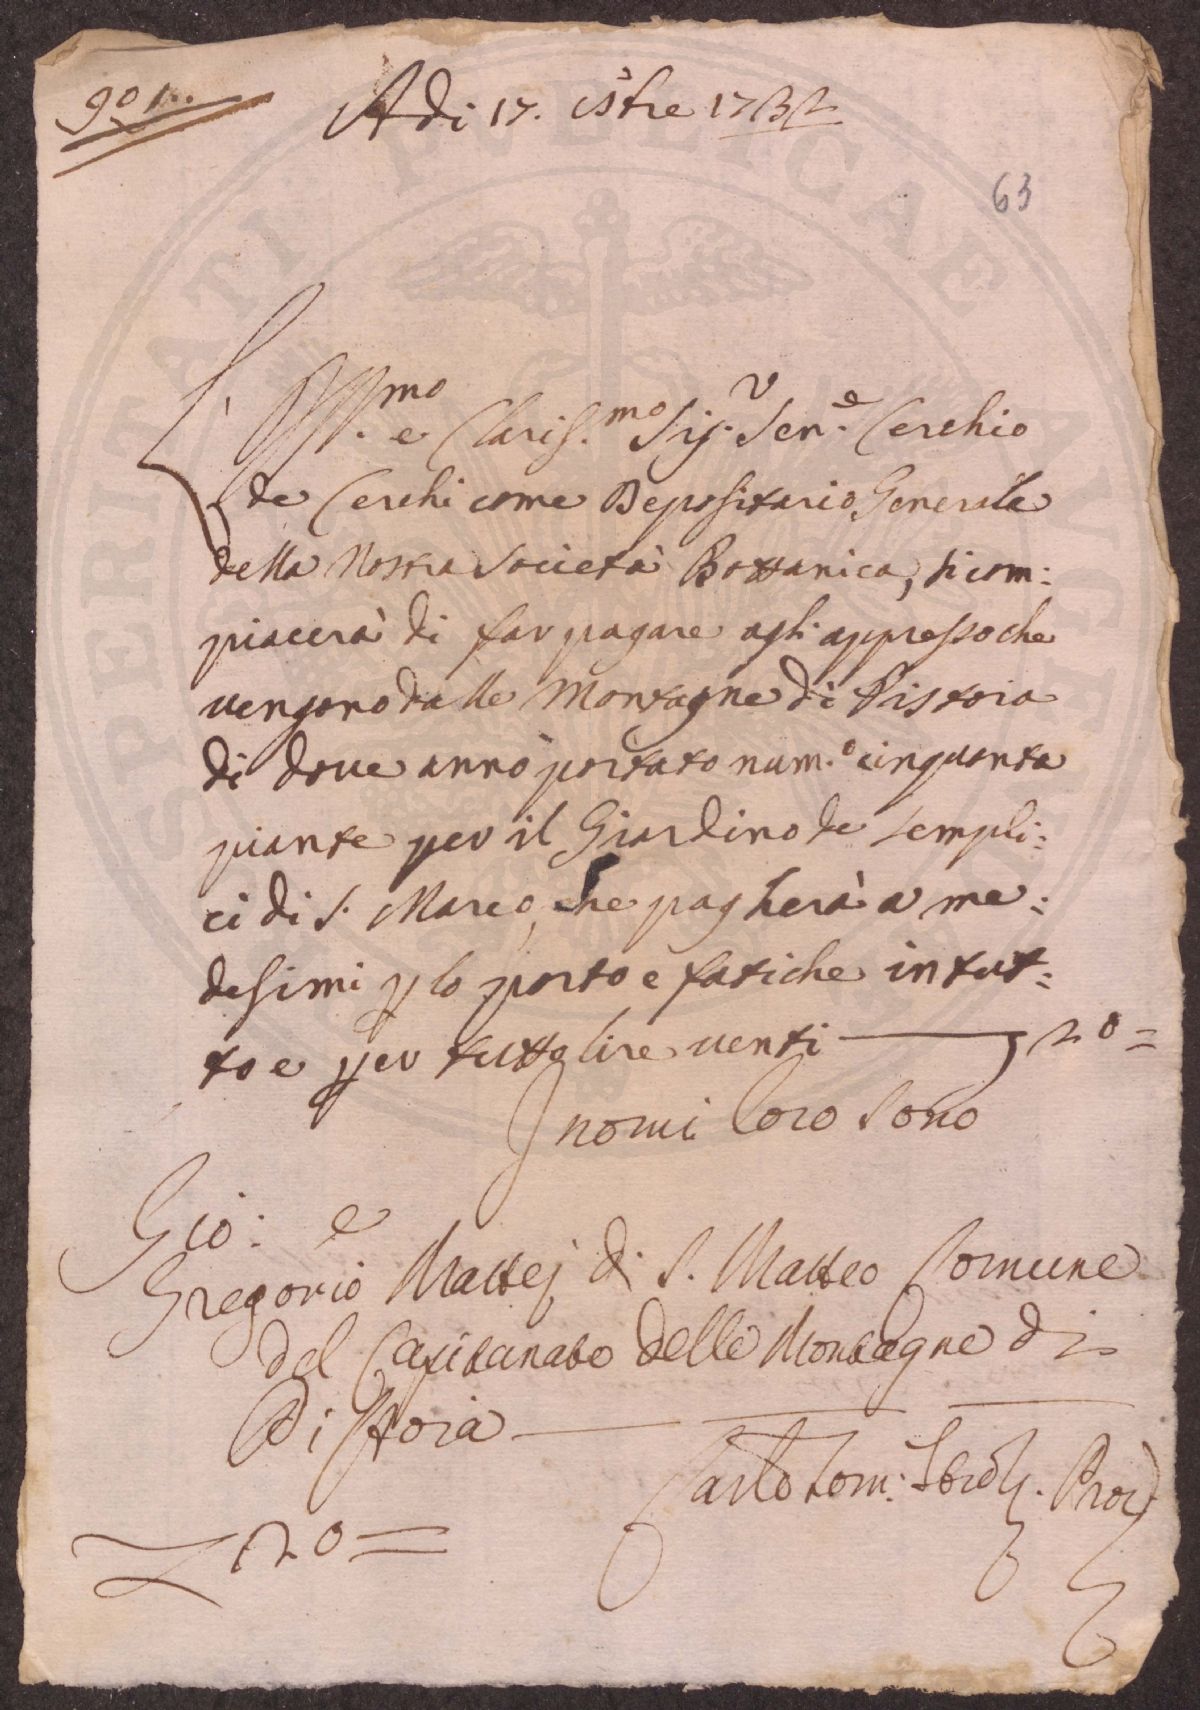 901..
Adi 17. 8bre 1732
63
L'Ill.mo e Claris.mo Sig.r Sen.e Cerchio
de Cerchi come Depositario Generale
della Nostra Società Bottanica, si com:
piacerà di far pagare agli appresso che
vengono dalle Montagne di Pistoia
di dove annò portato num.o cinquanta
piante per il Giardino de sempli:
ci di S. Marco, che pagherà a me:
desimi p lo porto e fatiche in tut:
to e per tutto lire venti — 20=
I nomi loro sono
Gio: e
Gregorio Mattej di S. Matteo Comune
del Capitanato delle Montagne di
Pistoia
Carlo Tom:
£ 20=
SPERITATI PVBLICAE